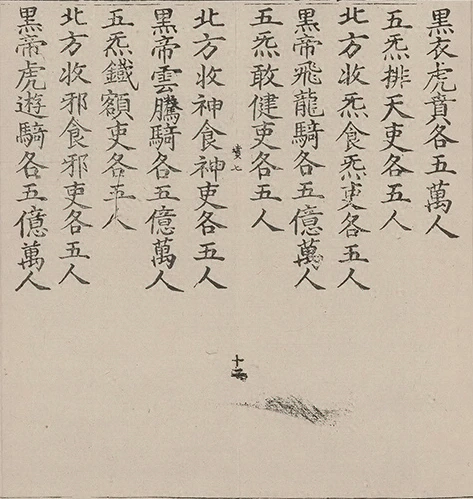 黑衣虎賁各五萬人
五炁排天吏各五人
北方收炁食炁吏各五人
黑帝飛龍騎各五億萬人
五炁敢健吏各五人
賓七
十二
北方收神食神吏各五人
黑帝雲騰騎各五億萬人
五炁鐵額吏各五人
北方收邪食邪吏各五人
黑帝虎遊騎各五億萬人